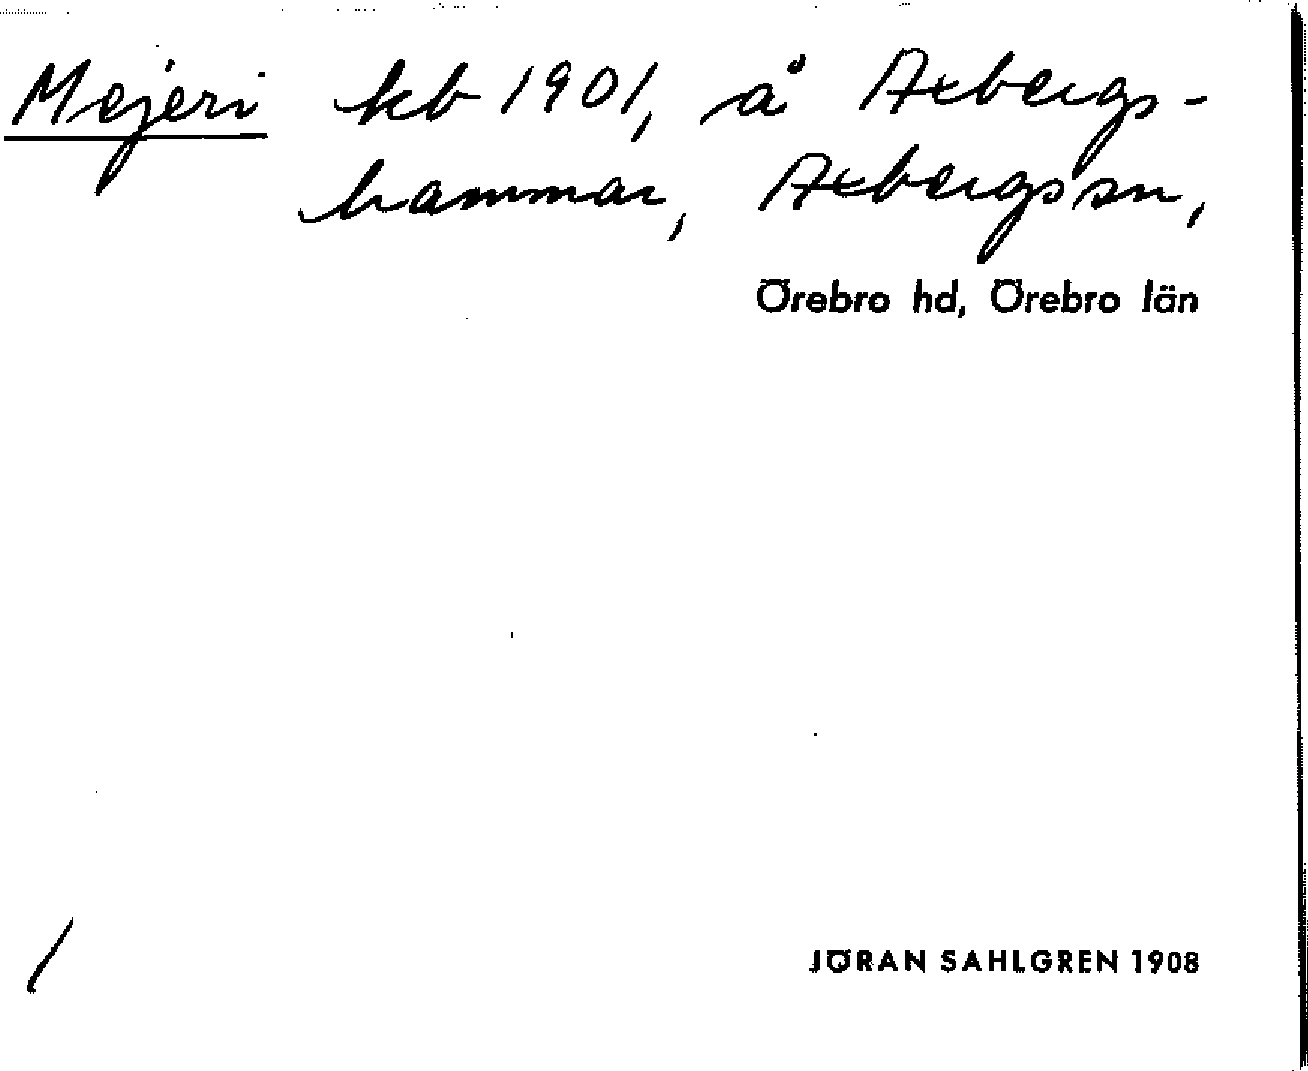 Mejeri kb 1901, å Axbergs-
hammar, Axbergs sn,
Örebro hd, Örebro län
/
JÖRAN SAHLGREN 1908